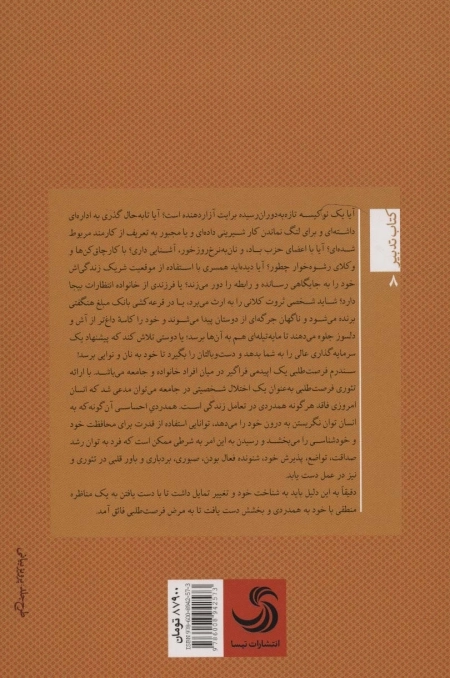 کتاب تدبیر
۸
آیا یک نوکیسه تازه‌به‌دوران‌رسیده برایت آزاردهنده است؛ آیا تابه‌حال گذری به اداره‌ای
داشته‌ای و برای لنگ نماندن کار شیرینی داده‌ای و یا مجبور به تعریف از کارمند مربوط
شده‌ای؛ آیا با اعضای حزب باد، و نان‌به‌نرخ‌روزخور، آشنایی داری؛ با کارچاق‌کن‌ها و
وکلای رشوه‌خوار چطور؛ آیا دیده‌اید همسری با استفاده از موقعیت شریک زندگی‌اش
خود را به جایگاهی رسانده و رابطه را دور می‌زند؛ یا فرزندی از خانواده انتظارات بیجا
دارد؛ شاید شخصی ثروت کلانی را به ارث می‌برد، یا در قرعه‌کشی بانک مبلغ هنگفتی
برنده می‌شود و ناگهان جرگه‌ای از دوستان پیدا می‌شوند و خود را کاسهٔ داغ‌تر از آش و
دلسوز جلوه می‌دهند تا مایه‌تیله‌ای هم به آن‌ها برسد؛ یا دوستی تلاش کند که پیشنهاد یک
سرمایه‌گذاری عالی را به شما بدهد و دست‌وبالتان را بگیرد تا خود به نان و نوایی برسد؛
سندرم فرصت‌طلبی یک اپیدمی فراگیر در میان افراد خانواده و جامعه می‌باشد. با ارائه
تئوری فرصت‌طلبی به‌عنوان یک اختلال شخصیتی در جامعه می‌توان مدعی شد که انسان
امروزی فاقد هرگونه همدردی در تعامل زندگی است. همدردی احساسی آن‌گونه‌که به
انسان توان نگریستن به درون خود را می‌دهد، توانایی استفاده از قدرت برای محافظت خود
و خودشناسی را می‌بخشد و رسیدن به این امر به شرطی ممکن است که فرد به توان رشد
صداقت، تواضع، پذیرش خود، شنونده فعال بودن، صبوری، بردباری و باور قلبی در تئوری و
نیز در عمل دست یابد.
دقیقاً به این دلیل باید به شناخت خود و تغییر تمایل داشت تا با دست یافتن به یک مناظره
منطقی با خود به همدردی و بخشش دست یافت تا به مرض فرصت‌طلبی فائق آمد.
طرح جلد: پرویز بیانی
انتشارات تیسا
۸۷۹۰۰ تومان
ISBN:978-600-8942-57-3
9786008942573